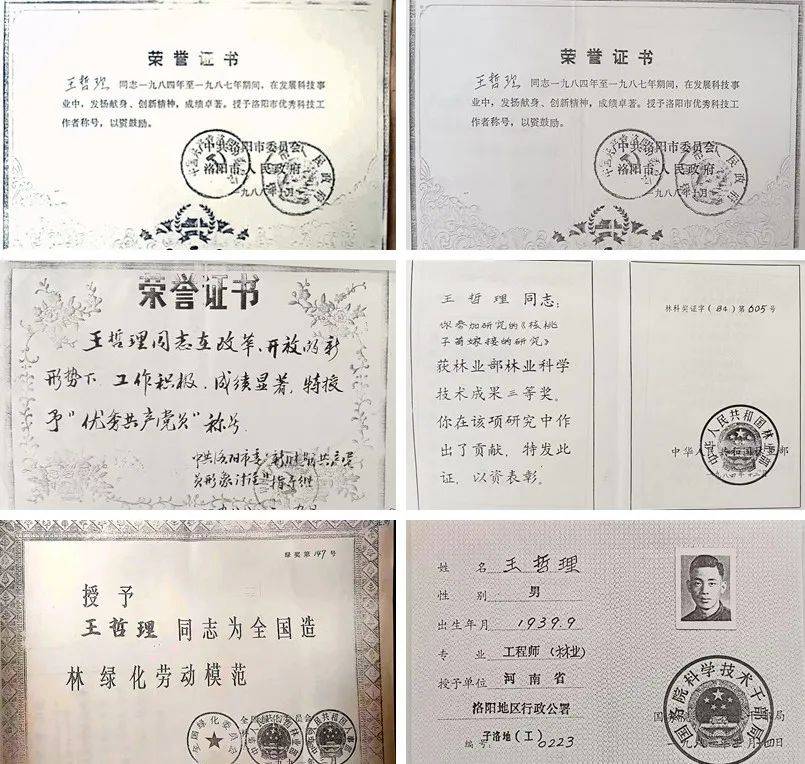 荣誉证书
王哲理 同志一九八四年至一九八七年期间，在发展科技事
业中，发扬献身、创新精神，成绩卓著。授予洛阳市优秀科技工
作者称号，以资鼓励。
中共洛阳市委员会
洛阳市人民政府
一九八八年 月
荣誉证书
王哲理 同志一九八四年至一九八七年期间，在发展科技事
业中，发扬献身、创新精神，成绩卓著。授予洛阳市优秀科技工
作者称号，以资鼓励。
中共洛阳市委员会
洛阳市人民政府
一九八八年 月
荣誉证书
王哲理同志在改革、开放的新
形势下 工作积极，成绩显著，特授
予“优秀共产党员”称号
中共洛阳市委
王哲理同志：
你参加研究的《核桃
子苗嫁接的研究》
获林业部林业科学
技术成果三等奖。
你在该项研究中作
出了贡献，特发此
证，以资表彰。
林科奖证字（84）第605号
中华人民共和国林业部
绿奖第147号
授予
王哲理 同志为全国造
林绿化劳动模范
姓名 王哲理
性别 男
出生年月 1939.9
专业 工程师（林业）
授予单位 河南省
洛阳地区行政公署
编号 子洛地（工）0223
国务院科学技术干部局